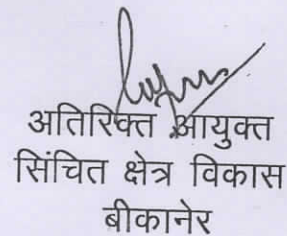 अतिरिक्त आयुक्त
सिंचित क्षेत्र विकास
बीकानेर